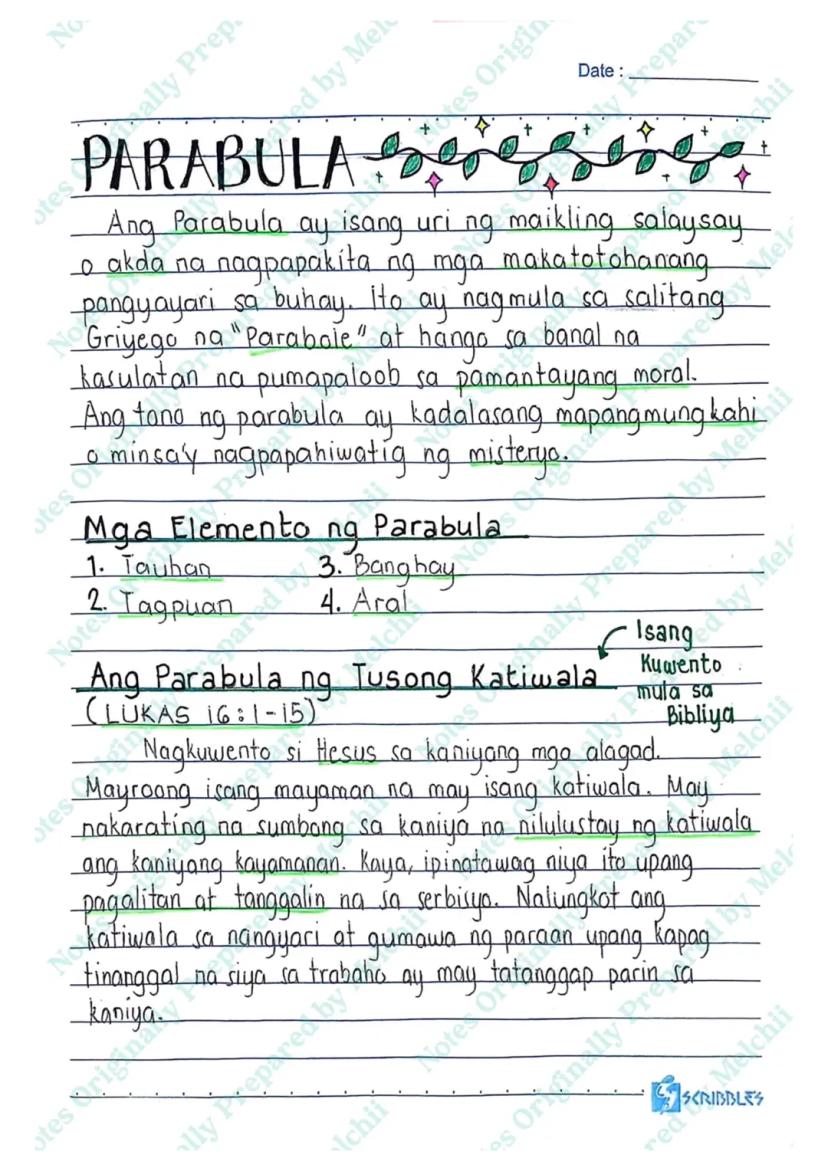 Date :
PARABULA
Ang Parabula ay isang uri ng maikling salaysay
o akda na nagpapakita ng mga makatotohanang
pangyayari sa buhay. Ito ay nagmula sa salitang
Griyego na "Parabole" at hango sa banal na
kasulatan na pumapaloob sa pamantayang moral.
Ang tono ng parabula ay kadalasang mapangmungkahi
o minsa'y nagpapahiwatig ng misteryo.
Mga Elemento ng Parabula
1. Tauhan 3. Banghay
2. Tagpuan 4. Aral
Isang
Kuwento
mula sa
Bibliya
Ang Parabula ng Tusong Katiwala
(LUKAS 16:1-15)
Nagkuwento si Hesus sa kaniyang mga alagad.
Mayroong isang mayaman na may isang katiwala. May
nakarating na sumbong sa kaniya na nilulustay ng katiwala
ang kaniyang kayamanan. Kaya, ipinatawag niya ito upang
pagalitan at tanggalin na sa serbisyo. Nalungkot ang
katiwala sa nangyari at gumawa ng paraan upang kapag
tinanggal na siya sa trabaho ay may tatanggap parin sa
kaniya.
SCRIBBLES
Notes Originally Prepared by Melchii